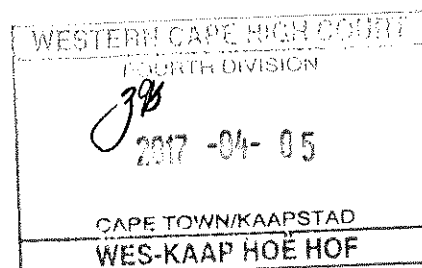 WESTERN CAPE HIGH COURT
FOURTH DIVISION
2017 -04- 05
CAPE TOWN/KAAPSTAD
WES-KAAP HOË HOF